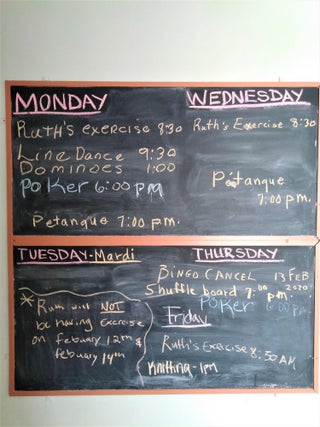 MONDAY
Ruth's exercise 8:30
Line Dance 9:30
Dominoes 1:00
Poker 6:00 pm
Petanque 7:00 p.m.
WEDNESDAY
Ruth's Exercise 8:30
Pétanque
7:00 p.m.
TUESDAY-Mardi
* Ruth will NOT
be having Exercise
on Febuary 12th &
Febuary 14th
THURSDAY
BINGO CANCEL 13 FEB
2020
Shuffle board 7:00 p.m.
Poker 6:00 pm
Friday
Ruth's Exercise 8:30 AM
Knitting-1pm